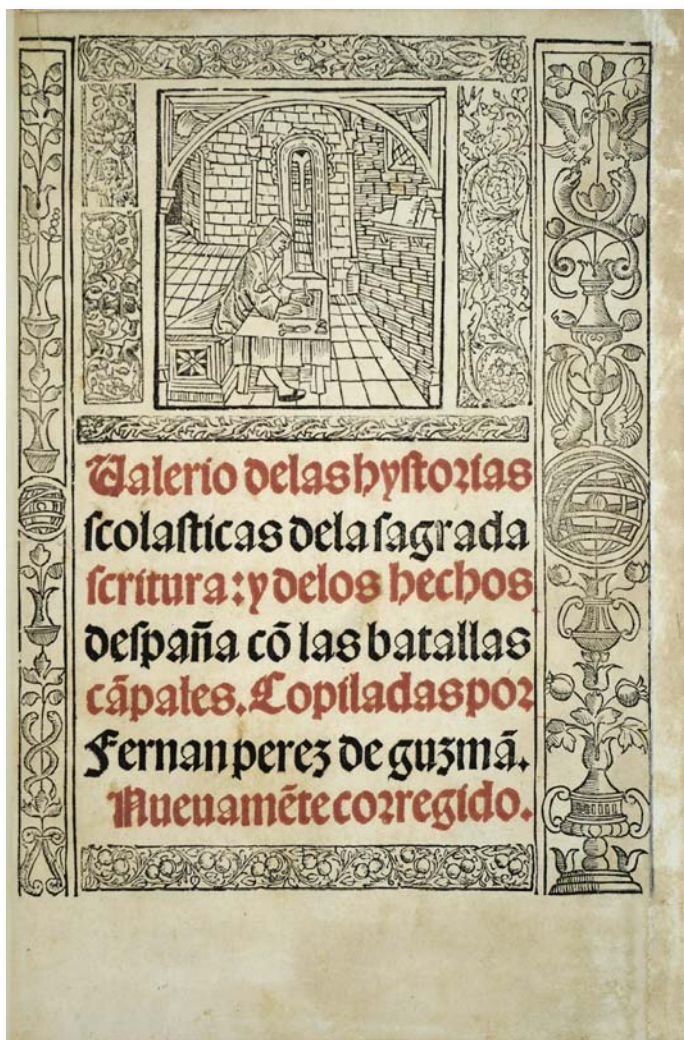 Ualerio delas hystorias
scolasticas dela sagrada
scritura: y delos hechos
despaña cõ las batallas
cãpales. Copiladas por
Fernan perez de guzmã.
Nueuamẽte corregido.